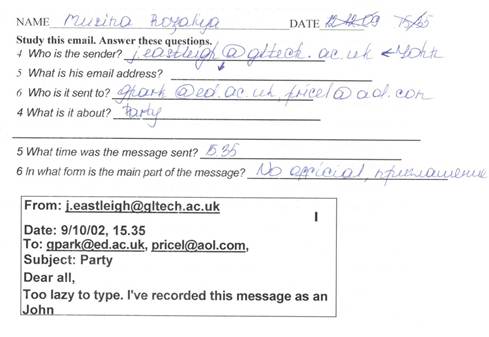 NAME Musina Rozaliya DATE 15/05
Study this email. Answer these questions.
4 Who is the sender? j.eastleigh@gltech.ac.uk ← John
5 What is his email address?
6 Who is it sent to? gpark@ed.ac.uk, pricel@aol.com
4 What is it about? Party
5 What time was the message sent? 15.35
6 In what form is the main part of the message? No official, приглашение
From: j.eastleigh@gltech.ac.uk
I
Date: 9/10/02, 15.35
To: gpark@ed.ac.uk, pricel@aol.com,
Subject: Party
Dear all,
Too lazy to type. I've recorded this message as an
John